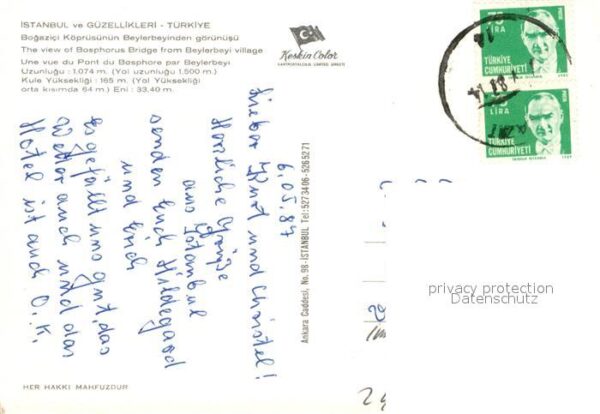 İSTANBUL ve GÜZELLİKLERİ - TÜRKİYE
Boğaziçi Köprüsünün Beylerbeyinden görünüşü
The view of Bosphorus Bridge from Beylerbeyi village
Une vue du Pont du Bosphore par Beylerbeyi
Uzunluğu : 1.074 m. (Yol uzunluğu 1.500 m.)
Kule Yüksekliği : 165 m. (Yol Yüksekliği
orta kısımda 64 m.) Eni : 33.40 m.
Keskin Color
KARTPOSTALCILIK LİMİTED ŞİRKETİ
75
LİRA
TÜRKİYE
CUMHURİYETİ
LİRA
TÜRKİYE
CUMHURİYETİ
6.05.87
Lieber Kurt und Christel!
Herzliche Grüße
aus Istanbul
senden Euch Hildegard
und Erich
Es gefällt uns gut, das
Wetter auch und das
Hotel ist auch O.K.
Ankara Caddesi, No. 98 - İSTANBUL Tel: 527 34 06 - 526 52 71
privacy protection
Datenschutz
HER HAKKI MAHFUZDUR